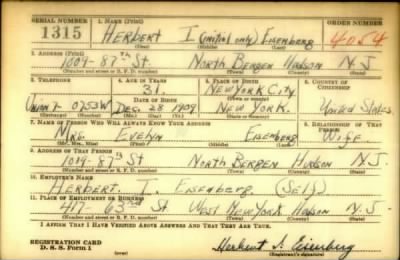 SERIAL NUMBER 1. NAME (Print) ORDER NUMBER
1315 HERBERT I (initial only) EISENBERG 4054
(First) (Middle) (Last)
2. ADDRESS (Print)
1009-87th St. NORTH BERGEN HUDSON N.J.
(Number and street or R. F. D. number) (Town) (County) (State)
3. TELEPHONE 4. AGE IN YEARS 5. PLACE OF BIRTH 6. COUNTRY OF CITIZENSHIP
31. NEW YORK CITY
0753W DATE OF BIRTH (Town or county)
DEC. 28 1909 NEW YORK. United States
(Exchange) (Number) (Mo.) (Day) (Yr.) (State or country)
7. NAME OF PERSON WHO WILL ALWAYS KNOW YOUR ADDRESS 8. RELATIONSHIP OF THAT PERSON
MRS. EVELYN EISENBERG WIFE
(Mr., Mrs., Miss) (First) (Middle) (Last)
9. ADDRESS OF THAT PERSON
1009-87th St NORTH BERGEN HUDSON N.J.
(Number and street or R. F. D. number) (Town) (County) (State)
10. EMPLOYER'S NAME
HERBERT. I. EISENBERG (SELF)
11. PLACE OF EMPLOYMENT OR BUSINESS
417- 63rd St WEST NEW YORK HUDSON N.J.
(Number and street or R. F. D. number) (Town) (County) (State)
I AFFIRM THAT I HAVE VERIFIED ABOVE ANSWERS AND THAT THEY ARE TRUE.
REGISTRATION CARD
D. S. S. Form 1 Herbert I. Eisenberg
(Registrant's signature)